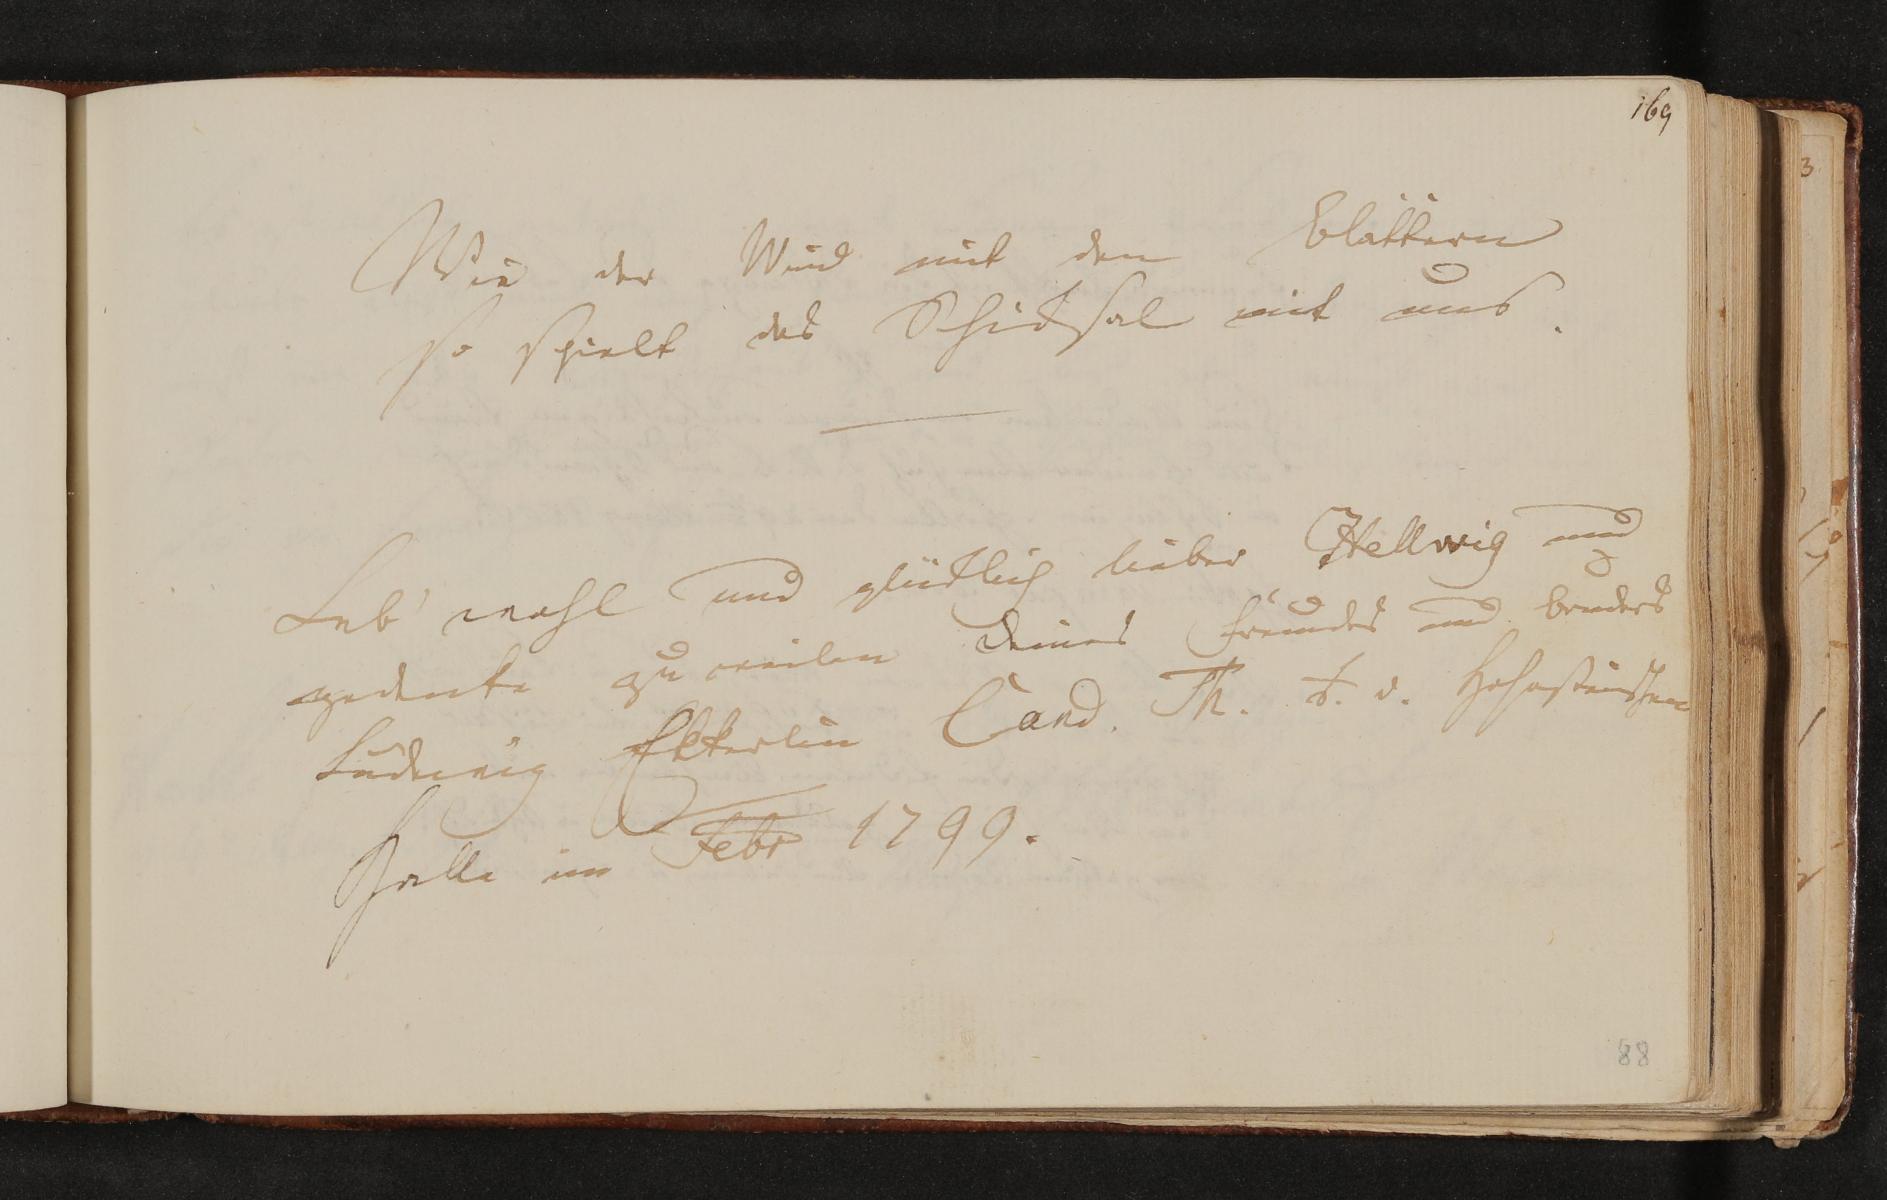 169
Wie der Wind mit den Blättern
so spielt das Schicksal mit uns.
Leb' wohl und glücklich lieber Hellwig und
gedenke zuweilen Deines Freundes und Bruders
Ludewig Ekkerlin Cand. Th. a. d. Hohnsteinschen
Halle im Febr 1799.
88
3